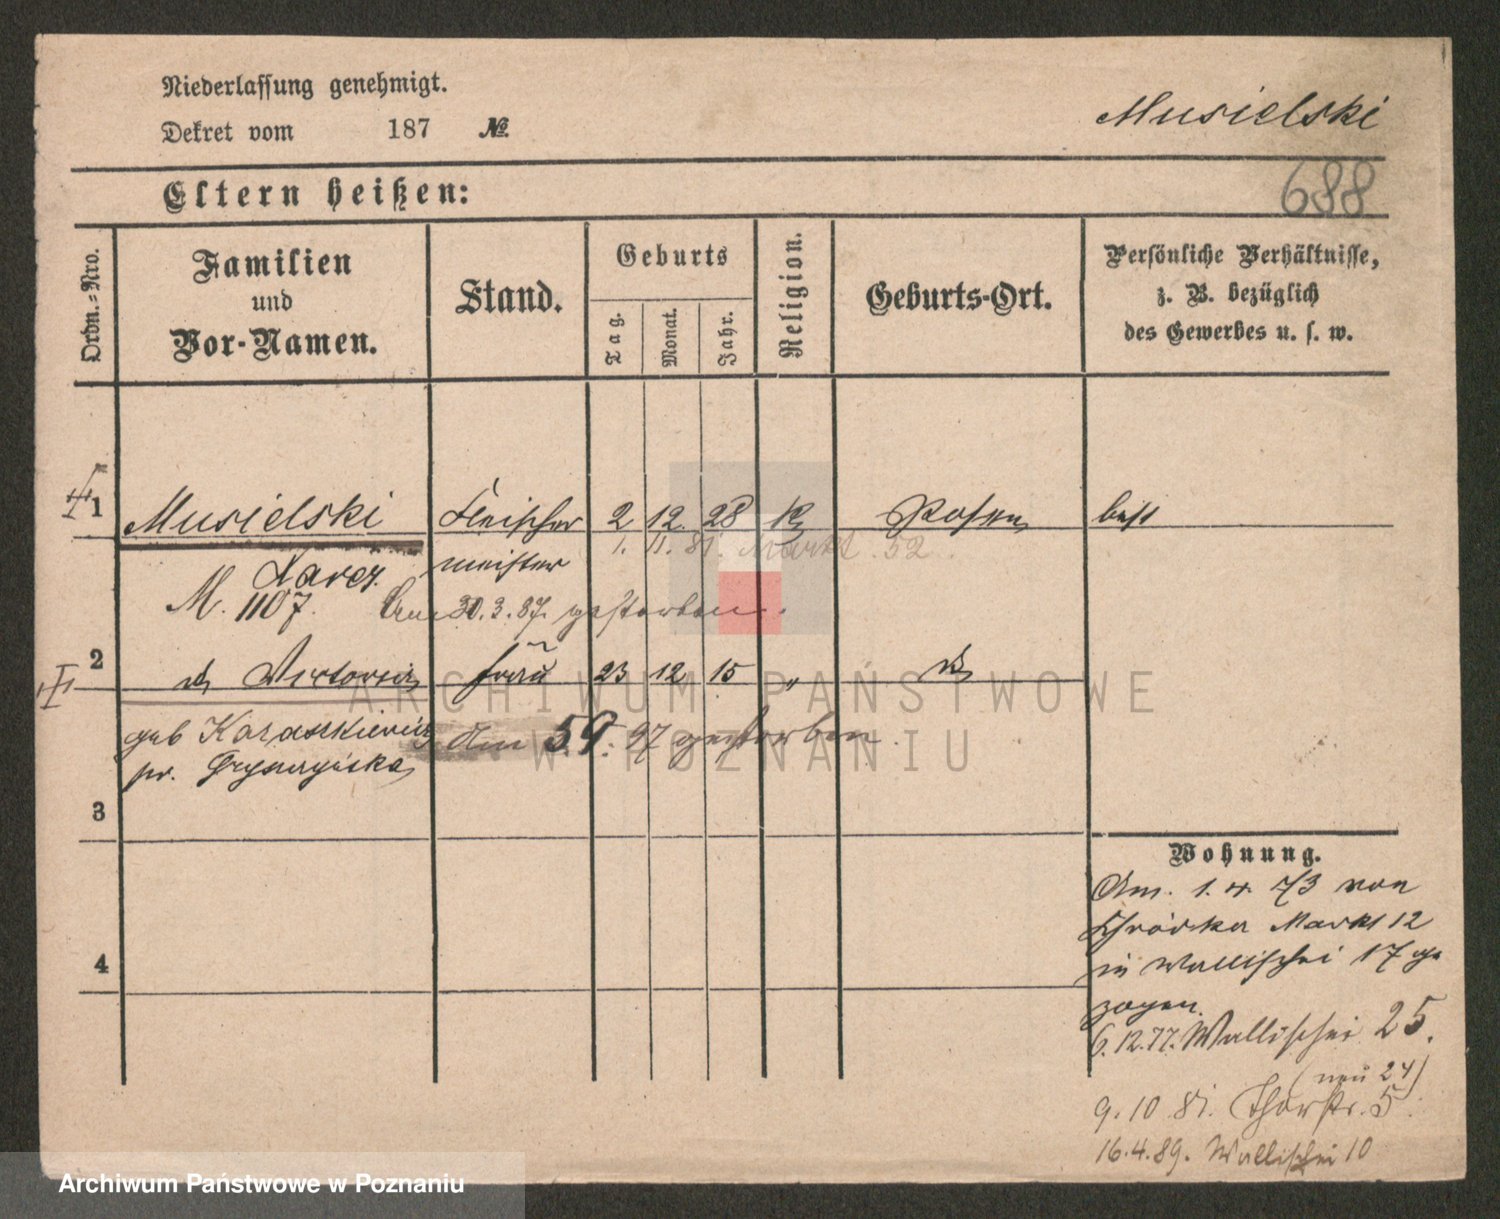 Niederlassung genehmigt.
Dekret vom 187 №.
Musielski
688
Eltern heißen:
Ordn.=Nro.
Familien und Vor-Namen.
Stand.
Geburts
Tag.
Monat.
Jahr.
Religion.
Geburts-Ort.
Persönliche Verhältnisse,
z. B. bezüglich
des Gewerbes u. s. w.
1 Musielski Fleischer 2 12. 28 Posen
meister 1. 11. 81. Markt 52
Xaver
M. 1107. 30.3.87. gestorben.
2 Victoria Frau 23 12 15 "
geb
am 97 gestorben
3
4
Wohnung.
Am. 1. 4. 73 von
Markt 12
in Wallischei 17 ge
zogen.
6.12.77. Wallischei 25.
(neu 24)
9.10.81. Thorstr. 5.
16.4.89. Wallischei 10
ARCHIWUM PAŃSTWOWE
W POZNANIU
Archiwum Państwowe w Poznaniu